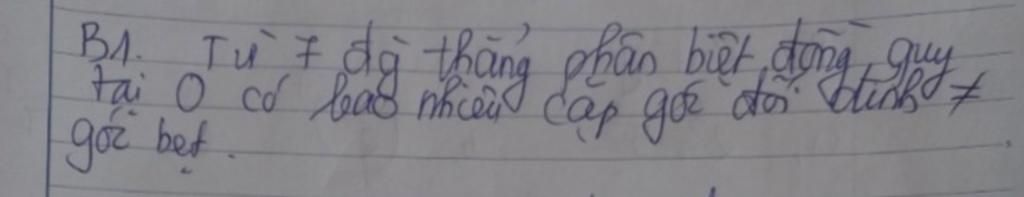 B1. Từ 7 đg thẳng phân biệt đồng quy
tại O có bao nhiêu cặp góc đối đỉnh ≠
góc bẹt.